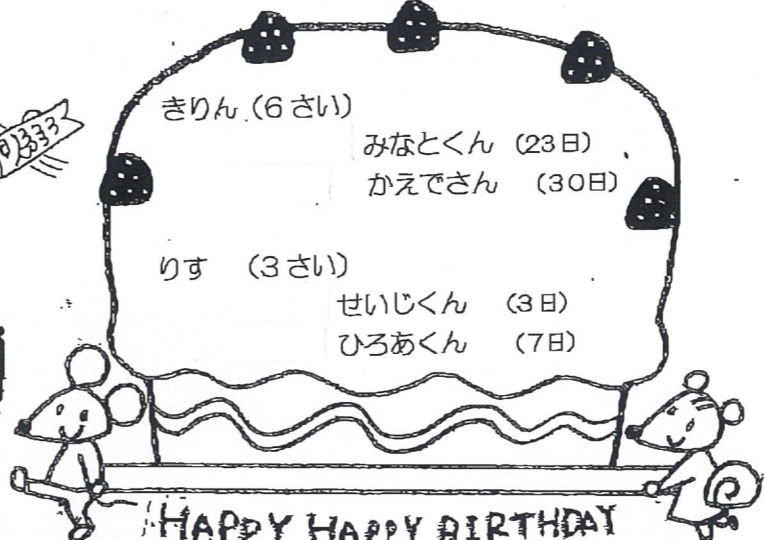 きりん(6さい)
みなとくん (23日)
かえでさん (30日)
りす (3さい)
せいじくん (3日)
ひろあくん (7日)
HAPPY HAPPY BIRTHDAY